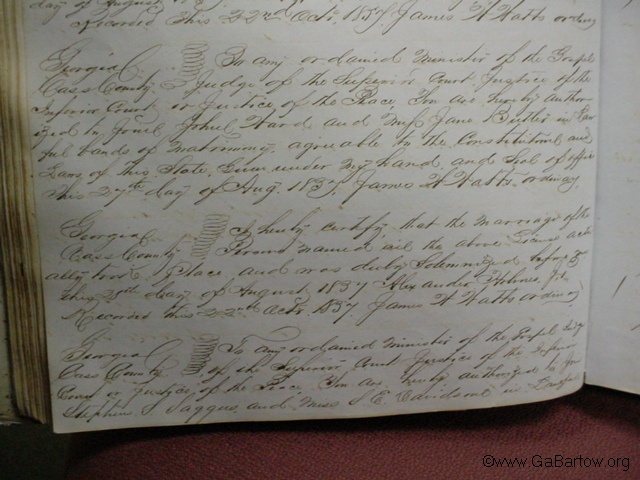 day of August
Recorded this 22nd Octr, 1857, James W Watts ordinary
Georgia To any ordained Minister of the Gospel
Cass County Judge of the Superior Court, Justice of the
Inferior Court or Justice of the Peace, You are hereby author
ized to Join Ward and Miss Jane Butler in Law
ful bands of Matrimony, agreeable to the Constitution and
Laws of this State, Given under my hand, and Seal of office
this 27th day of Aug. 1857, James W Watts, ordinary,
Georgia I hereby certify that the marriage of the
Cass County Persons named in the above
ally took Place, and was duly Solemnized before
this day of August, 1857 Alexander Holmes, J.P.
Recorded this 22nd Octr, 1857, James W Watts ordinary
Georgia To any ordained Minister of the Gospel Judge
Cass County of the Superior Court Justice of the Inferior
Court or Justice of the Peace You are hereby authorized to Join
Stephen and Miss E. Davidson in Lawful
©www.GaBartow.org